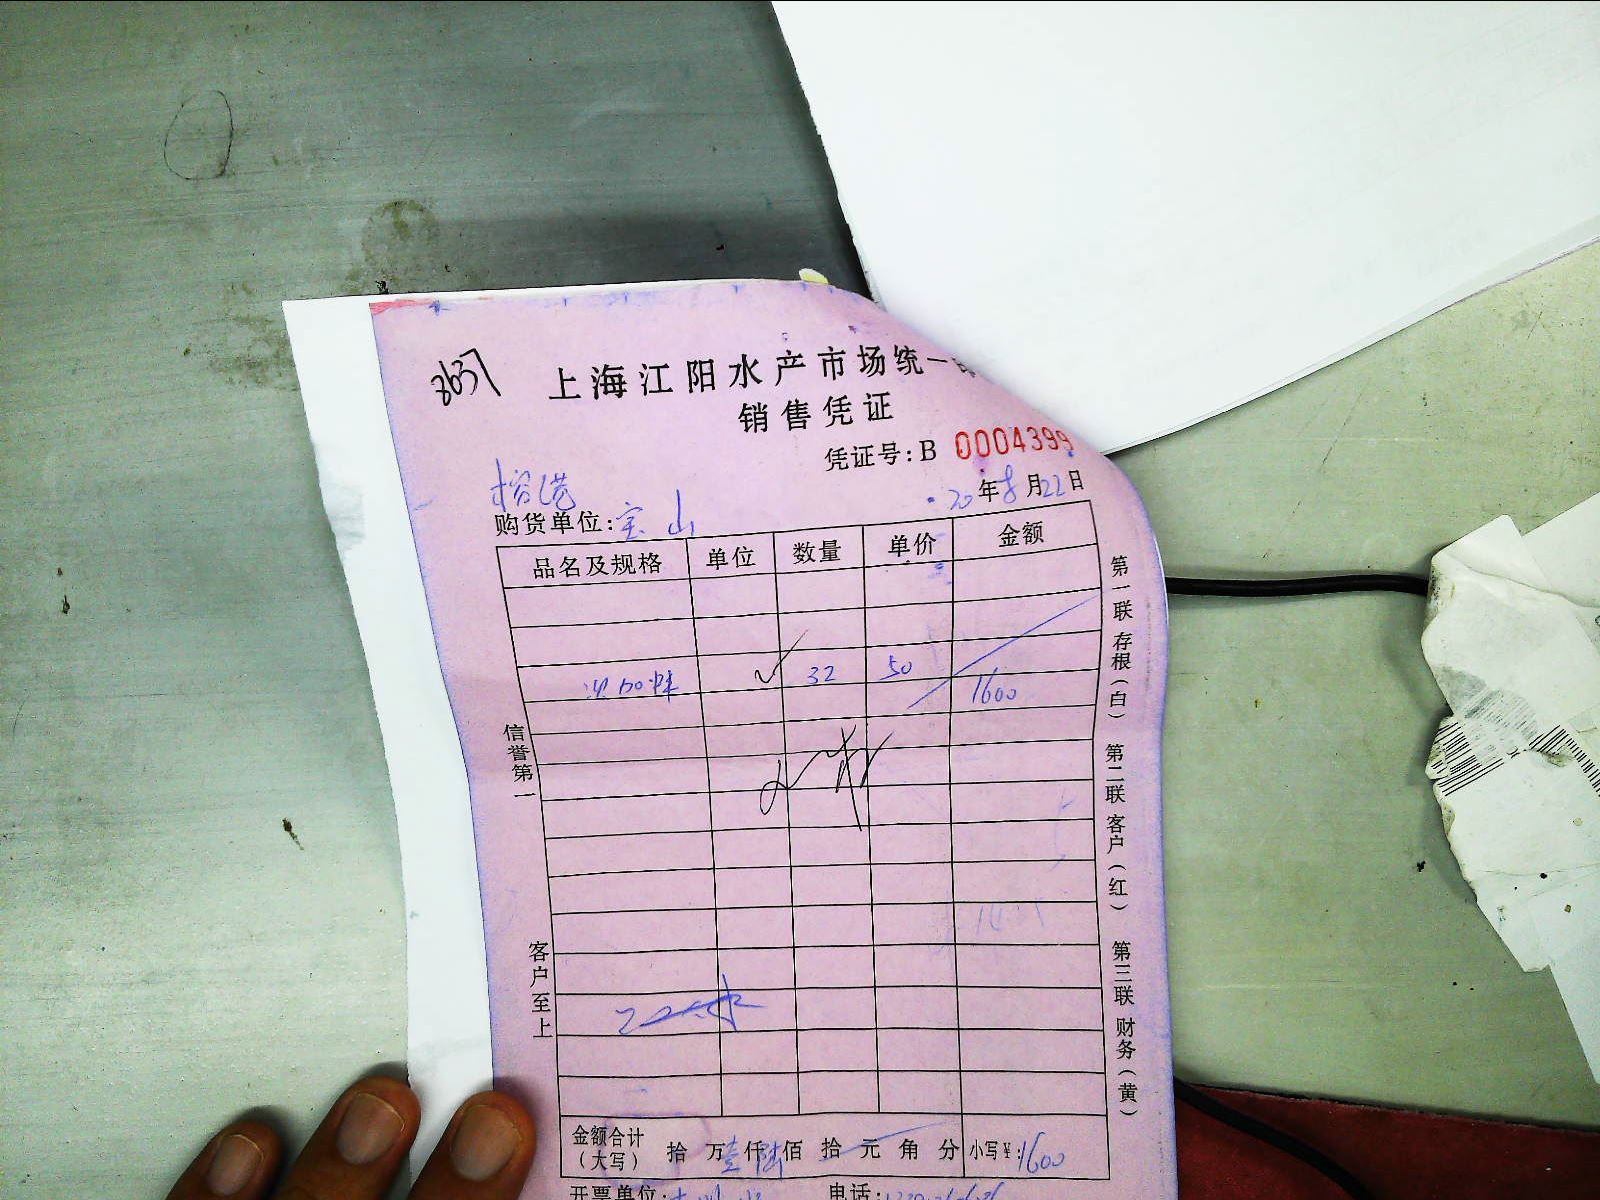 8637
上海江阳水产市场统一
销售凭证
凭证号:B 0004399
20年8月22日
购货单位:宝山
品名及规格 单位 数量 单价 金额
32 50 1600
信誉第一
客户至上
第一联存根(白) 第二联客户(红) 第三联财务(黄)
金额合计(大写) 拾万壹仟陆佰拾元角分 小写¥:1600
开票单位: 电话: